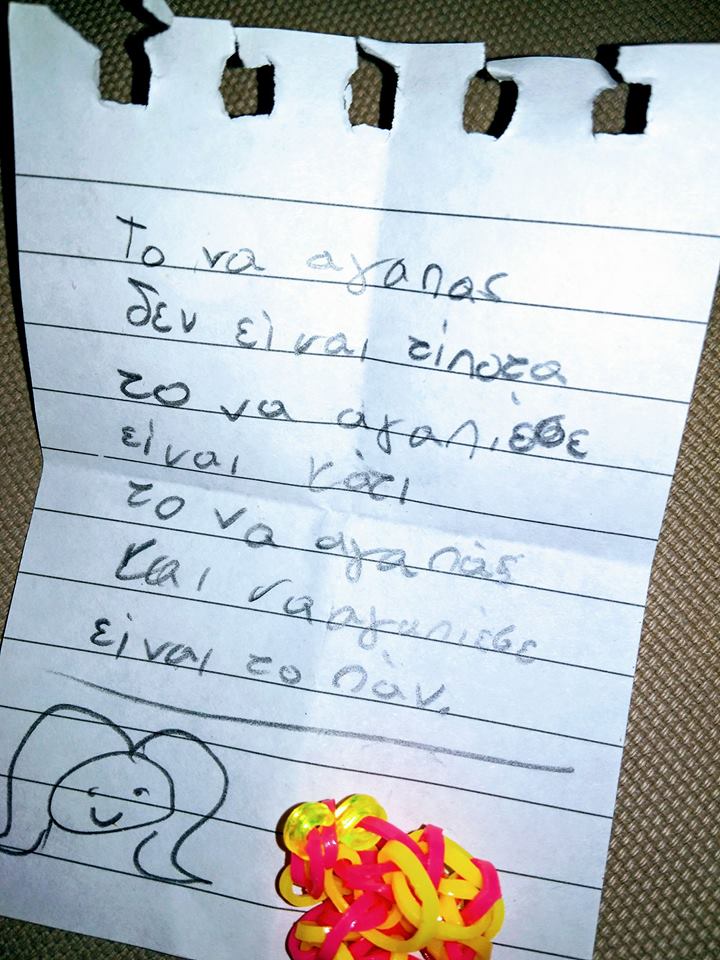 Το να αγαπας
δεν είναι τίποτα
το να αγαπιέσε
είναι κάτι
το να αγαπάς
Και να αγαπιέσε
είναι το πάν.